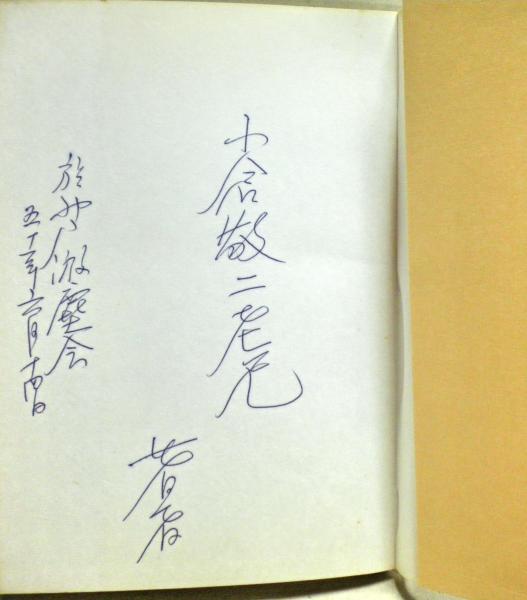 小倉敬二老兄
著者
於 微塵会
五十一年六月十四日